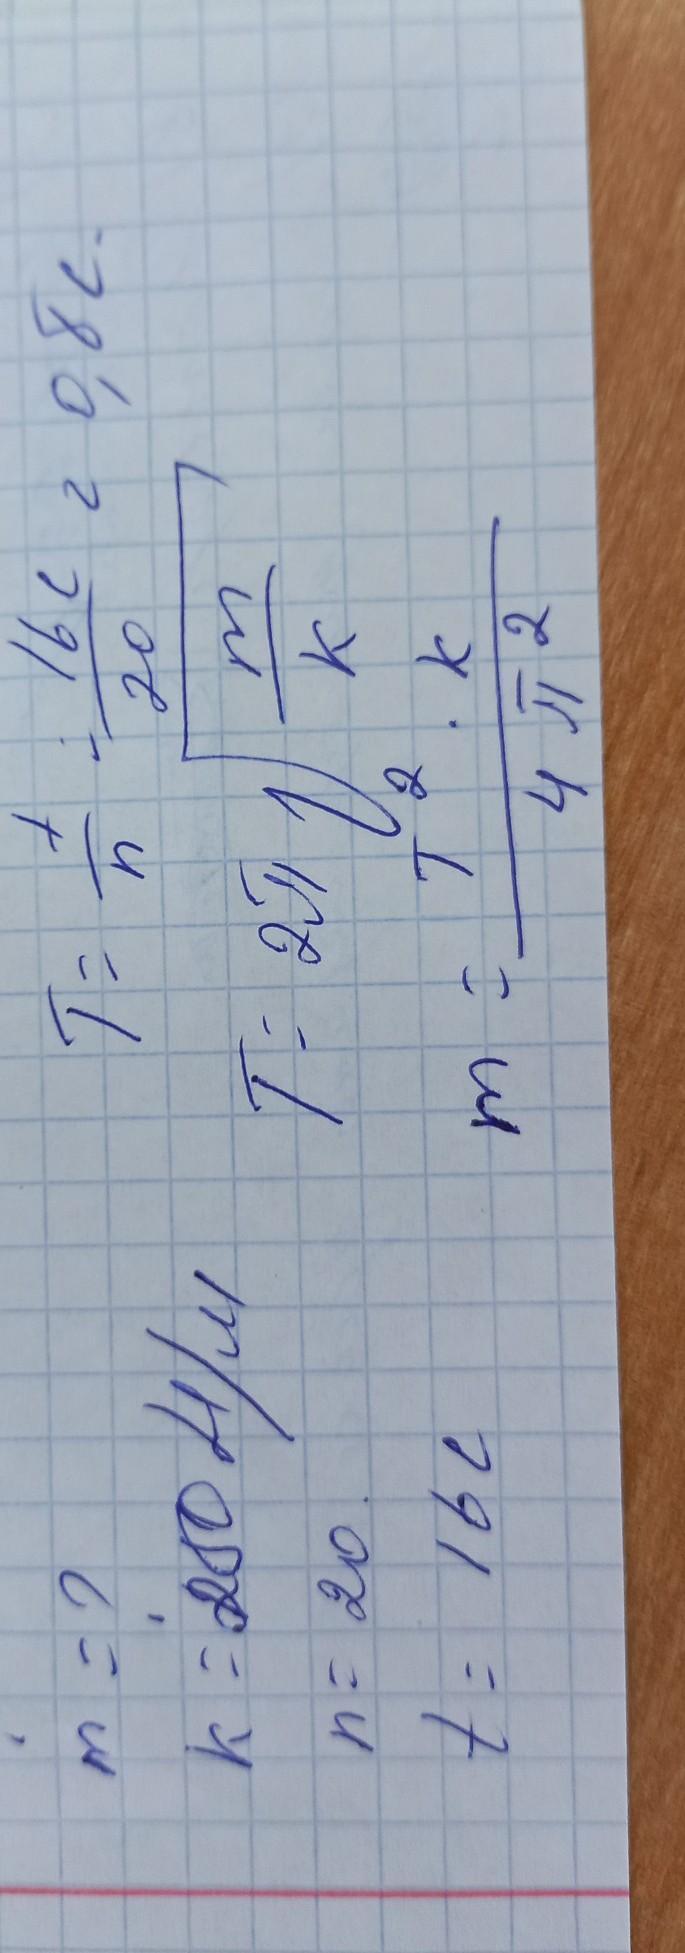 m = ?
k = 250 Н/м
n = 20.
t = 16с
T = t/n = 16с/20 = 0,8с.
T = 2π√(m/k)
m = T² · k / 4π²